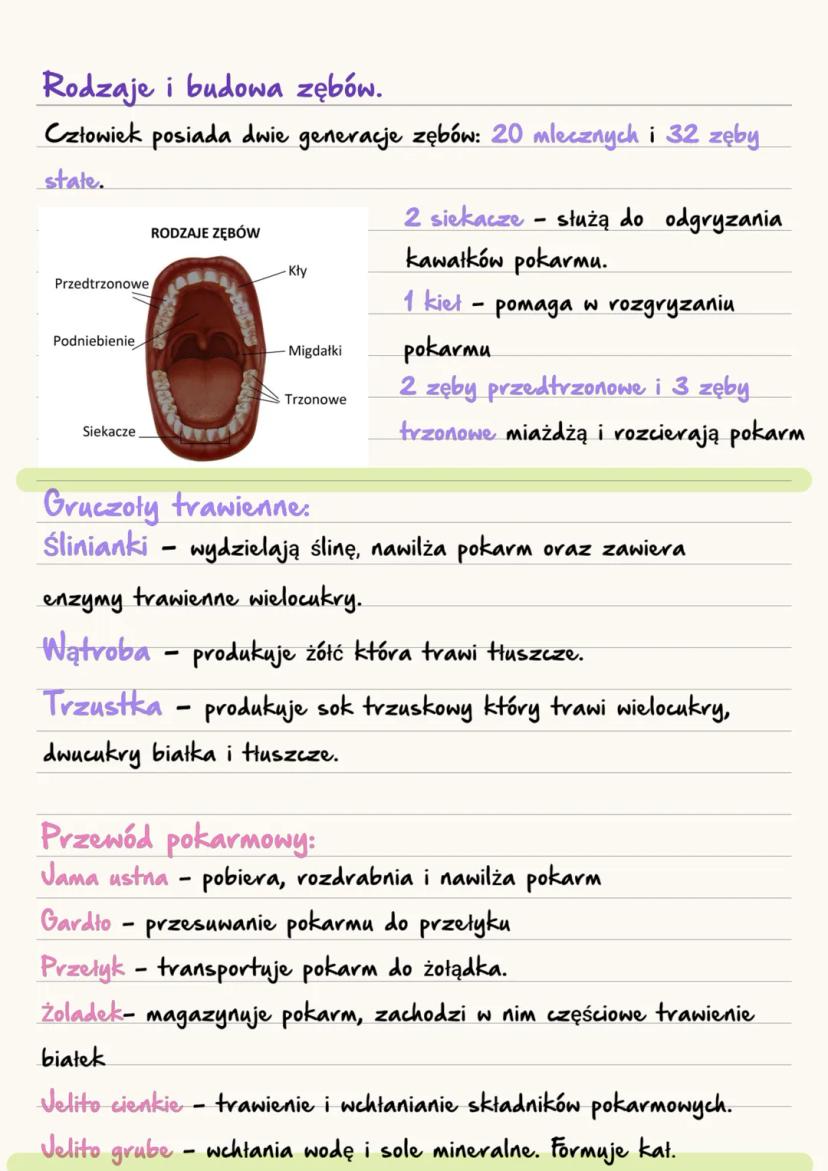 Rodzaje i budowa zębów.
Człowiek posiada dwie generacje zębów: 20 mlecznych i 32 zęby
stałe.
RODZAJE ZĘBÓW
Kły
Przedtrzonowe
Podniebienie
Migdałki
Trzonowe
Siekacze
2 siekacze – służą do odgryzania
kawałków pokarmu.
1 kieł – pomaga w rozgryzaniu
pokarmu
2 zęby przedtrzonowe i 3 zęby
trzonowe miażdżą i rozcierają pokarm
Gruczoły trawienne:
Ślinianki – wydzielają ślinę, nawilża pokarm oraz zawiera
enzymy trawienne wielocukry.
Wątroba – produkuje żółć która trawi tłuszcze.
Trzustka – produkuje sok trzuskowy który trawi wielocukry,
dwucukry białka i tłuszcze.
Przewód pokarmowy:
Jama ustna – pobiera, rozdrabnia i nawilża pokarm
Gardło – przesuwanie pokarmu do przełyku
Przełyk – transportuje pokarm do żołądka.
Żoladek– magazynuje pokarm, zachodzi w nim częściowe trawienie
białek
Jelito cienkie – trawienie i wchłanianie składników pokarmowych.
Jelito grube – wchłania wodę i sole mineralne. Formuje kał.